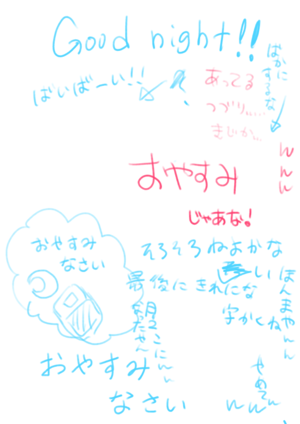 Good night!!
ばいばーい!!
ばかに
するな
あってる
つづり、、、
きじか、、
んんん
おやすみ
じゃあな!
おやすみ
なさい
そろそろねよかな
最後にきれいな
字かくね
ほんまやんん
やめてぃ
おやすみ
なさい
んんん